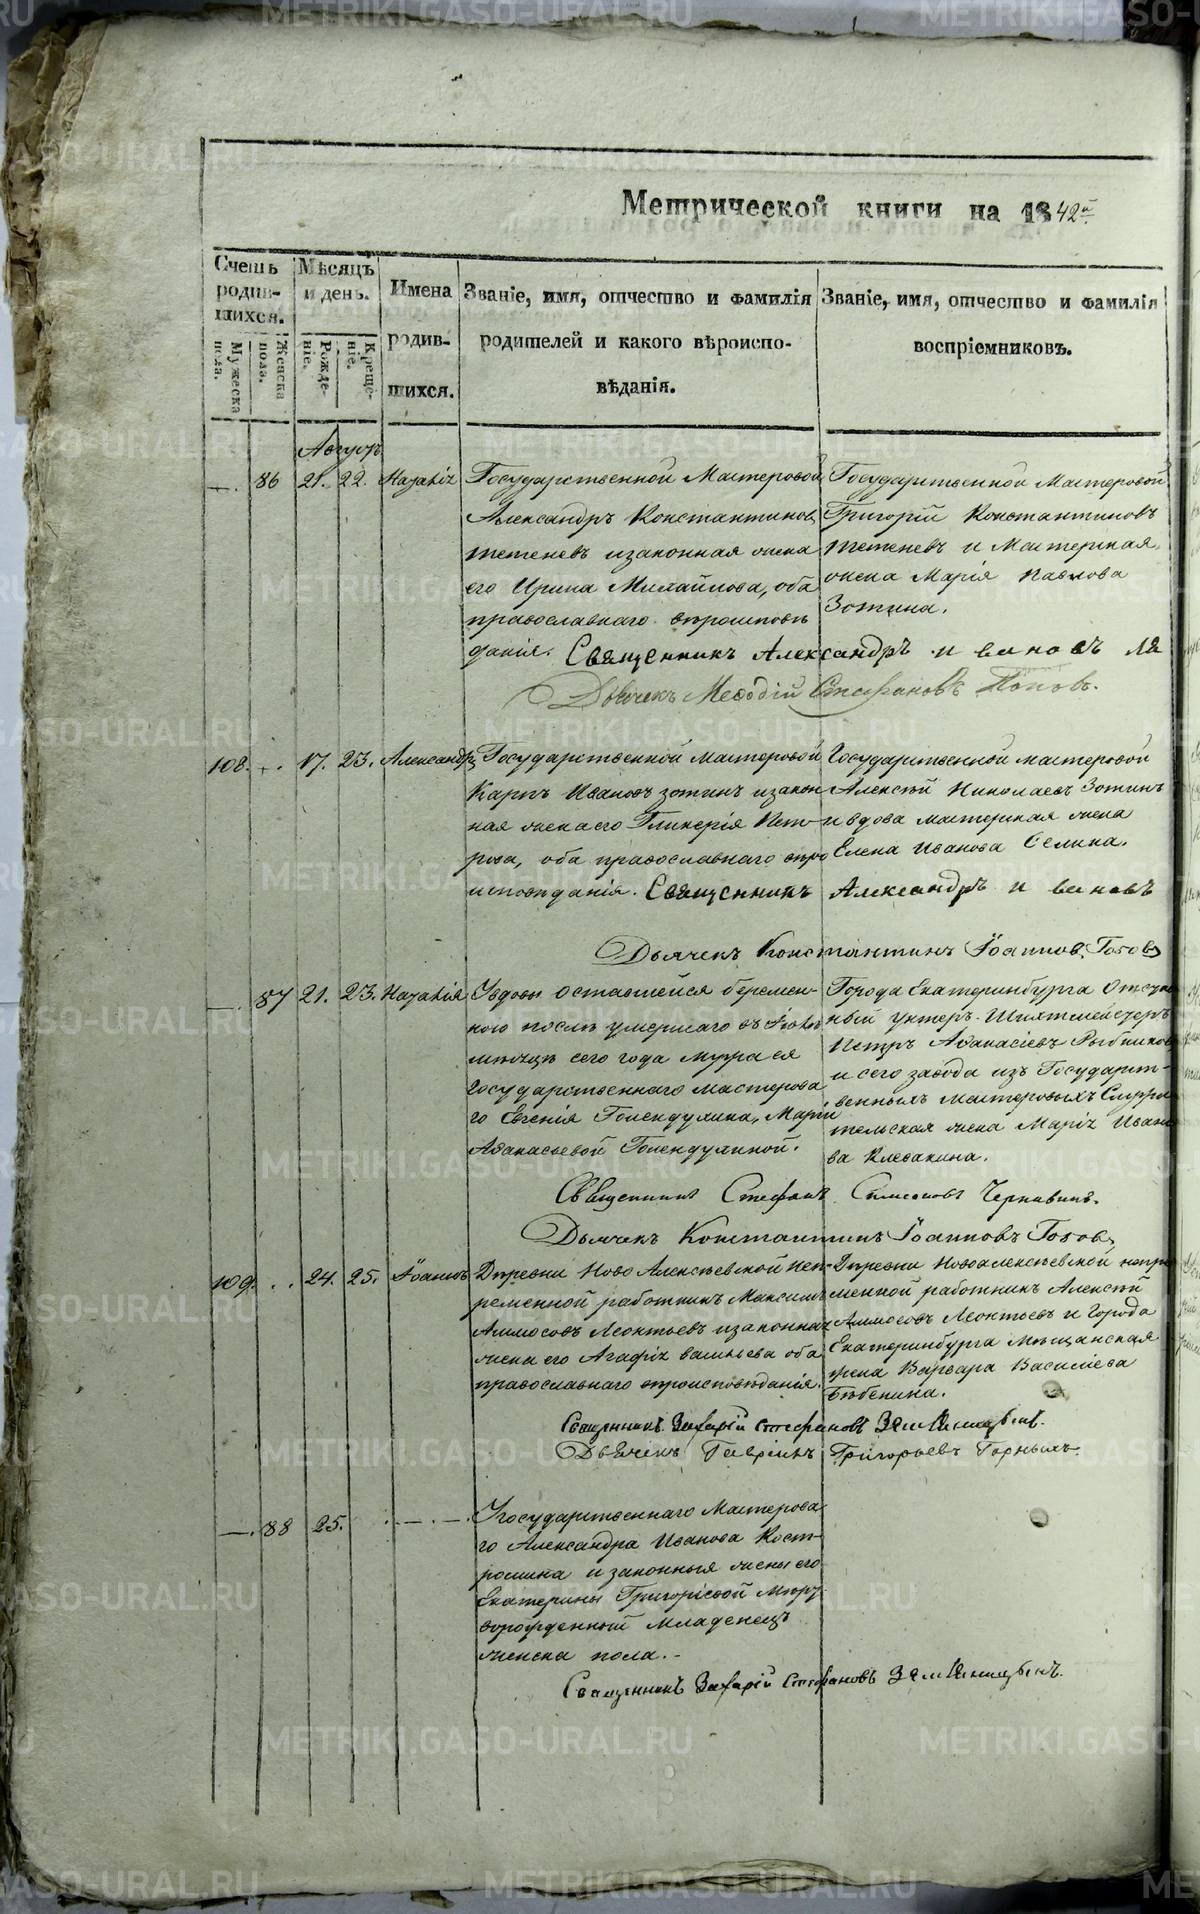 Метрической книги на 1842й
Счетъ родившихся.
Мужеска пола.
Женска пола.
Мѣсяцъ и день.
Рожденіе.
Крещеніе.
Имена родившихся.
Званіе, имя, отчество и фамилія родителей и какого вѣроисповѣданія.
Званіе, имя, отчество и фамилія воспріемниковъ.
Августъ
—. 86 21. 22. Наталія
Государственной Мастеровой
Александръ Константиновъ
Тетеневъ и законная жена
его Ирина Михайлова, оба
православнаго вѣроисповѣ
данія.
Государственной Мастеровой
Григорій Константиновъ
Тетеневъ и Мастерская
жена Марія Павлова
Зотина.
Священникъ Александръ Ивановъ
Дьячекъ Меѳодій Стефановъ Поповъ.
108. 17. 23. Александръ
Государственной мастеровой
Карпъ Ивановъ Зотинъ и закон
ная жена его Гликерія Пет-
рова, оба православнаго вѣро
исповѣданія.
Государственной мастеровой
Алексѣй Николаевъ Зотинъ
и вдова мастерская жена
Елена Иванова Селина.
Священникъ Александръ Ивановъ
Дьячекъ Константинъ Іоанновъ
—. 87 21. 23. Наталія
У вдовы оставшейся беремен-
ною послѣ умершаго въ
мѣсяцѣ сего года мужа ея
Государственнаго мастерова
го Евгенія Голендухина, Маріи
Аѳанасьевой Голендухиной.
Города Екатеринбурга
ный унтеръ-Шихтмейстеръ
Петръ Аѳанасіевъ Рыбниковъ
и сего завода изъ Государст-
венныхъ мастеровыхъ
жена Марія Ивано
ва Клевакина.
Священникъ Стефанъ Симеоновъ
Дьячекъ Константинъ Іоанновъ
109. 24. 25. Іоаннъ
Деревни Ново Алексѣевской неп-
ременной работникъ Максимъ
Аммосовъ Леонтьевъ и законная
жена его Агафія Васильева оба
православнаго вѣроисповѣданія.
Деревни Новоалексѣевской непре
менной работникъ Алексѣй
Аммосовъ Леонтьевъ и Города
Екатеринбурга Мѣщанская
жена Варвара Василіева
Бабенина.
Священникъ Захарій Стефановъ Земляницынъ.
Дьячекъ Гавріилъ Григорьевъ Горныхъ.
—. 88 25. . — . — .
У государственнаго Мастерова
го Александра Иванова Кост-
ромина и законныя жены его
Екатерины Григоріевой Мерт
ворожденный Младенецъ
женска пола. -
Священникъ Захарій Стефановъ Земляницынъ.
METRIKI.GASO-URAL.RU